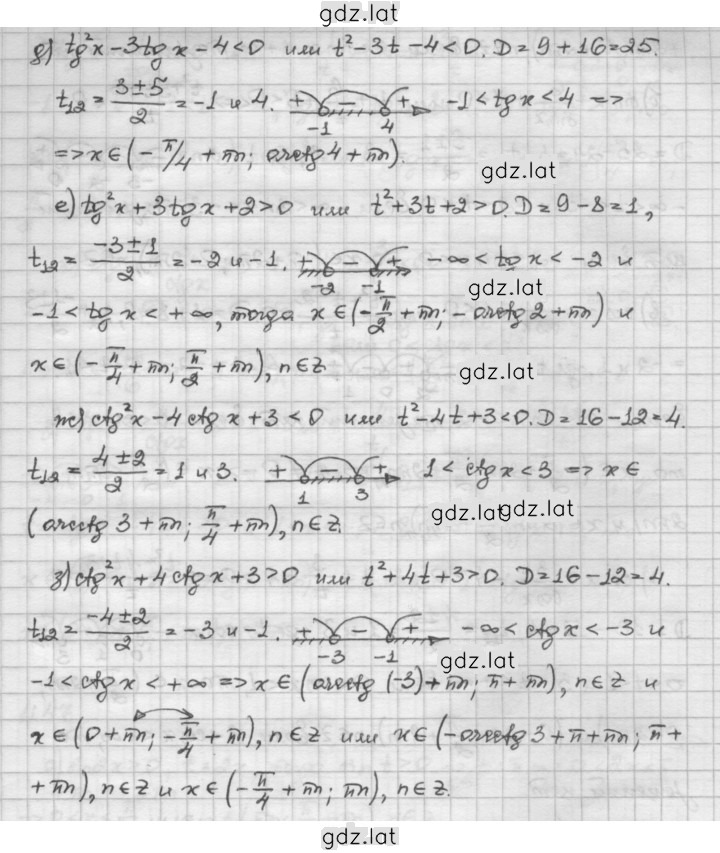 gdz.lat
д) tg²x − 3tg x − 4 < 0 или t² − 3t − 4 < 0. D = 9 + 16 = 25.
t₁₂ = (3 ± 5)/2 = −1 и 4. + − + −1 4 −1 < tg x < 4 =>
=> x ∈ (−π/4 + πn; arctg 4 + πn).
gdz.lat
е) tg²x + 3tg x + 2 > 0 или t² + 3t + 2 > 0. D = 9 − 8 = 1,
t₁₂ = (−3 ± 1)/2 = −2 и −1. + − + −2 −1 −∞ < tg x < −2 и
gdz.lat
−1 < tg x < +∞, тогда x ∈ (−π/2 + πn; −arctg 2 + πn) и
x ∈ (−π/4 + πn; π/2 + πn), n ∈ Z
gdz.lat
ж) ctg²x − 4ctg x + 3 < 0 или t² − 4t + 3 < 0. D = 16 − 12 = 4.
t₁₂ = (4 ± 2)/2 = 1 и 3. + − + 1 3 1 < ctg x < 3 => x ∈
gdz.lat gdz.lat
(arcctg 3 + πn; π/4 + πn), n ∈ Z.
з) ctg²x + 4ctg x + 3 > 0 или t² + 4t + 3 > 0. D = 16 − 12 = 4.
t₁₂ = (−4 ± 2)/2 = −3 и −1. + − + −3 −1 −∞ < ctg x < −3 и
gdz.lat
−1 < ctg x < +∞ => x ∈ (arcctg (−3) + πn; π + πn), n ∈ Z и
x ∈ (0 + πn; −π/4 + πn), n ∈ Z или x ∈ (−arcctg 3 + π + πn; π +
+ πn), n ∈ Z и x ∈ (−π/4 + πn; πn), n ∈ Z.
gdz.lat